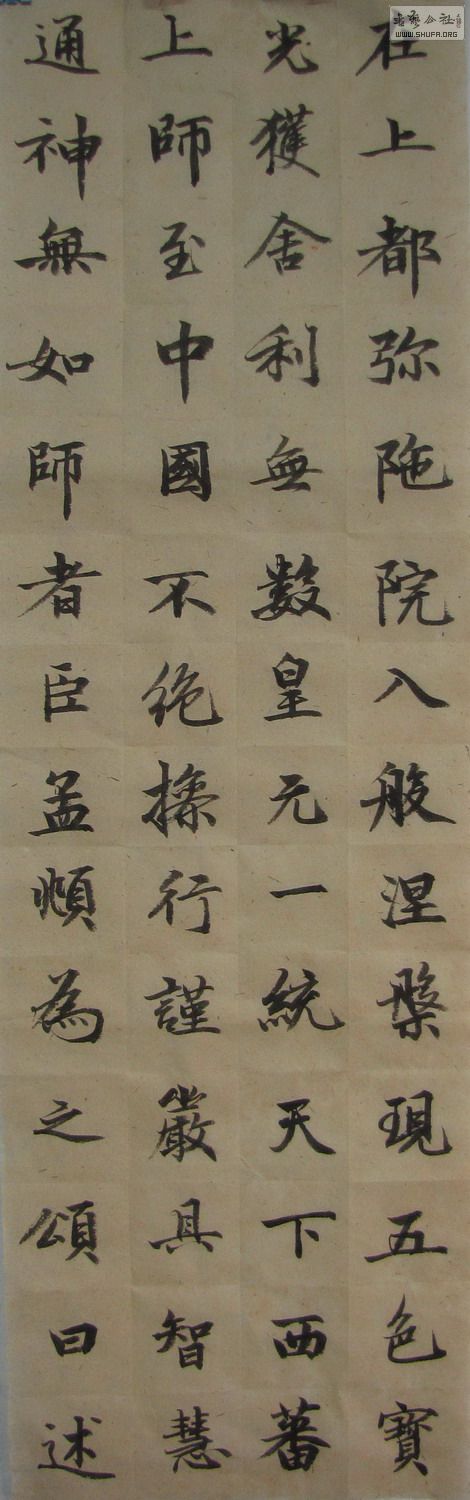 在上都弥陁院入般涅槃現五色寶
光獲舍利無數皇元一統天下西蕃
上師至中國不絶操行謹嚴具智慧
通神無如師者臣孟頫為之頌曰述
WWW.SHUFA.ORG